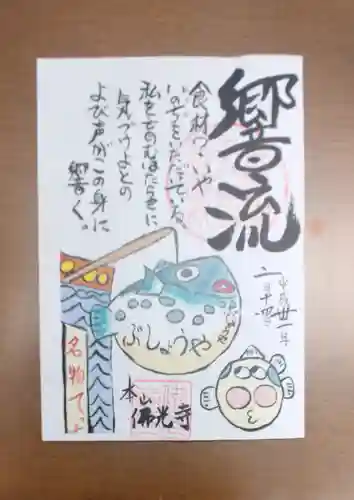 響流
食材ついや
いのちをいただいている
私をつつむはたらきに
気づけよとの
よび声がこの身に
響く。
平成卅一年
二月十四日
ぶしょうや
名物てっ
本山
佛光寺